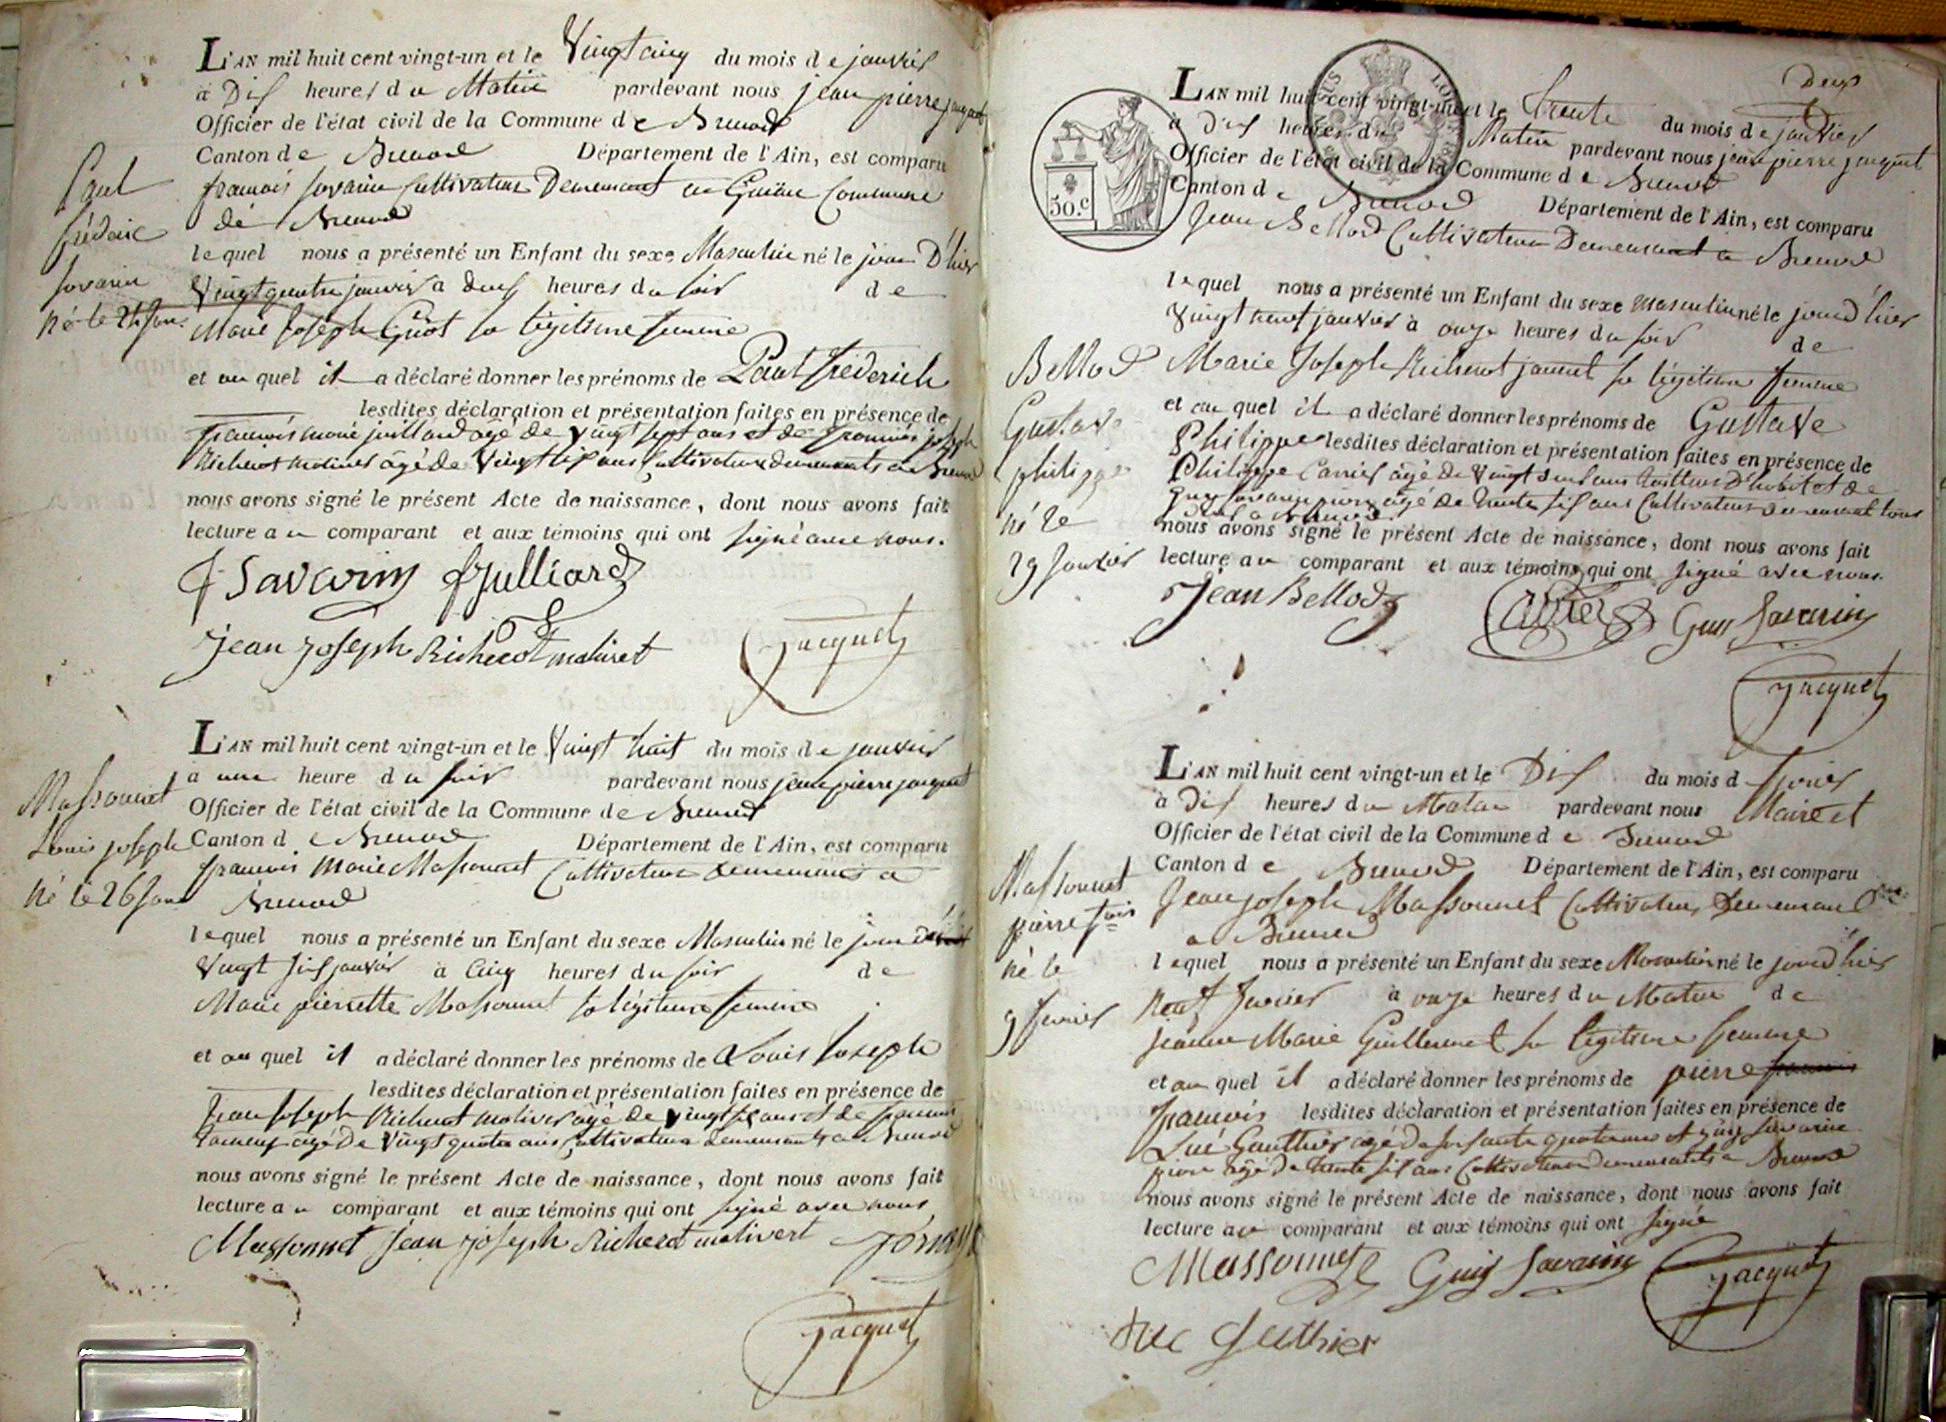 L'AN mil huit cent vingt-un et le Vingt cinq du mois de janvier
à Dix heures du Matin pardevant nous jean pierre jacquet
Officier de l'état civil de la Commune de Brenod
Canton de Brenod Département de l'Ain, est comparu
francois Savarin Cultivateur Demeurant a Commune
de Brenod
lequel nous a présenté un Enfant du sexe Masculin né le jour D'hier
Vingt quatre janvier a deux heures du soir de
Marie Joseph Guiot sa légitime femme
et au quel il a déclaré donner les prénoms de Paul frederich
lesdites déclaration et présentation faites en présence de
francois marie juilland âgé de Vingt sept ans et de joseph
Richerot molivert âgé de Vingt six ans Cultivateurs demeurants a Brenod
nous avons signé le présent Acte de naissance, dont nous avons fait
lecture au comparant et aux témoins qui ont signé avec nous.
f Savarin fJulliard
Jean Joseph Richerot molivert Jacquet
Paul
fréderic
Savarin
né le 24 Jan.
L'AN mil huit cent vingt-un et le Vingt huit du mois de janvier
à une heure du soir pardevant nous jean pierre jacquet
Officier de l'état civil de la Commune de Brenod
Canton de Brenod Département de l'Ain, est comparu
francois Marie Massonnet Cultivateur Demeurant a
Brenod
lequel nous a présenté un Enfant du sexe Masculin né le jour
Vingt six janvier à Cinq heures du soir de
Marie pierrette Massonnet sa légitime femme
et au quel il a déclaré donner les prénoms de Louis Joseph
lesdites déclaration et présentation faites en présence de
Jean Joseph Richerot molivert âgé de Vingt six ans et de francois
âgé De Vingt quatre ans Cultivateurs demeurants a Brenod
nous avons signé le présent Acte de naissance, dont nous avons fait
lecture au comparant et aux témoins qui ont signé avec nous
Massonnet Jean Joseph Richerot molivert
Jacquet
Massonnet
Louis joseph
né le 26 Jan
Deux
50.c
L'AN mil huit cent vingt-un et le trente du mois de janvier
à Dix heures du Matin pardevant nous jean pierre jacquet
Officier de l'état civil de la Commune de Brenod
Canton de Brenod Département de l'Ain, est comparu
Jean Bellod Cultivateur Demeurant a Brenod
lequel nous a présenté un Enfant du sexe masculin né le jour d'hier
Vingt neuf janvier à onze heures du soir de
Marie Joseph Richerot sa légitime femme
et au quel il a déclaré donner les prénoms de Gustave
Philippe lesdites déclaration et présentation faites en présence de
Philippe Carrier âgé de Vingt ans et de
Guy Savarin âgé de trente six ans Cultivateur demeurant tous
deux a Brenod
nous avons signé le présent Acte de naissance, dont nous avons fait
lecture au comparant et aux témoins qui ont signé avec nous.
Jean Bellod Carrier Guy Savarin
Jacquet
Bellod
Gustave
philippe
né le
29 Janvier
L'AN mil huit cent vingt-un et le Dix du mois d fevrier
à Dix heures du Matin pardevant nous Maire et
Officier de l'état civil de la Commune de Brenod
Canton de Brenod Département de l'Ain, est comparu
Jean joseph Massonnet Cultivateur Demeurant
a Brenod
lequel nous a présenté un Enfant du sexe Masculin né le jour d'hier
Neuf fevrier à onze heures du Matin de
jeanne Marie Guillermet sa légitime femme
et au quel il a déclaré donner les prénoms de pierre francois
francois lesdites déclaration et présentation faites en présence de
Luc Gauthier âgé de soixante quatre ans et guy Savarin
âgé de trente six ans Cultivateurs demeurants a Brenod
nous avons signé le présent Acte de naissance, dont nous avons fait
lecture au comparant et aux témoins qui ont signé
Massonnet Guy Savarin Jacquet
Luc Guthier
Massonnet
pierre fois
né le
9 fevrier